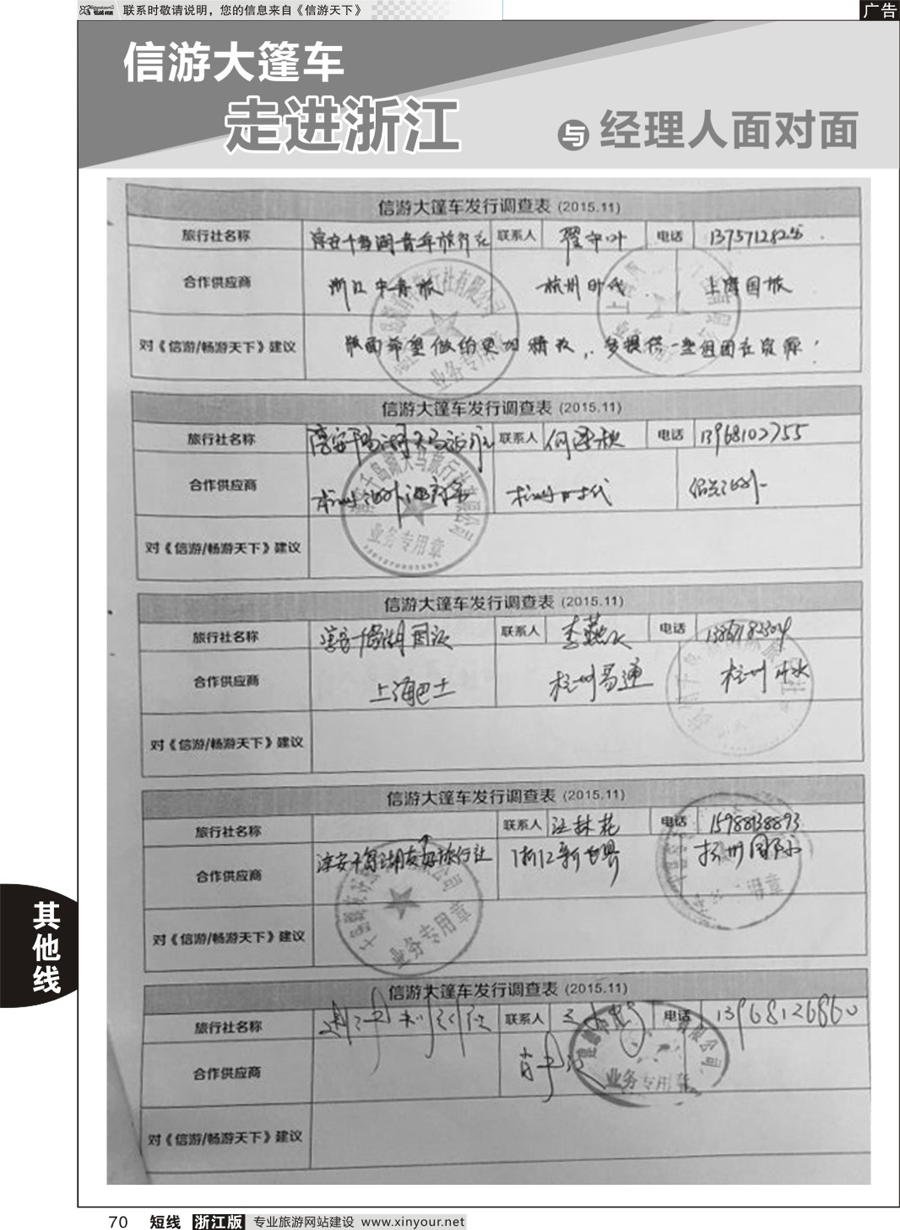 联系时敬请说明，您的信息来自《信游天下》
广告
信游大篷车
走进浙江
与 经理人面对面
信游大篷车发行调查表 (2015.11)
旅行社名称 淳安千岛湖青年旅行社 联系人 电话
合作供应商 浙江中青旅 杭州时代 上海国旅
对《信游/畅游天下》建议 版面希望做的更加精致，多提供一些组团社资源！
信游大篷车发行调查表 (2015.11)
旅行社名称 淳安千岛湖天马旅行社 联系人 电话 13968102755
合作供应商 杭州海外 杭州时代 绍兴海外
对《信游/畅游天下》建议
业务专用章
信游大篷车发行调查表 (2015.11)
旅行社名称 淳安千岛湖国旅 联系人 电话
合作供应商 上海巴士 杭州易通
对《信游/畅游天下》建议
信游大篷车发行调查表 (2015.11)
旅行社名称 联系人 汪林花 电话 15988138893
合作供应商 淳安千岛湖友好旅行社 浙江新世界
对《信游/畅游天下》建议
业务专用章
信游大篷车发行调查表 (2015.11)
旅行社名称 联系人 电话 13968126860
合作供应商
业务专用章
对《信游/畅游天下》建议
其他线
70 短线 浙江版 专业旅游网站建设 www.xinyour.net